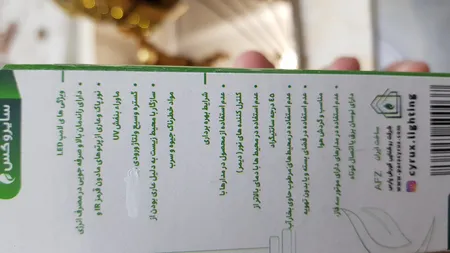 سایروکس
ویژگی های لامپ LED
• دارای راندمان بالا و صرفه جویی در مصرف انرژی
• نور پاک و عاری از پرتوهای مادون قرمز IR و
ماوراء بنفش UV
• گستره وسیع ولتاژ ورودی
• سازگار با محیط زیست به دلیل عاری بودن از
مواد خطرناک جیوه و سرب
شرایط بهره برداری
• عدم استفاده از محصول در مدارها با
کنترل کننده های نور (دیمر)
• عدم استفاده در محیط ها با دمای بالاتر از
۴۵ درجه سانتیگراد
• عدم استفاده در محیط های مرطوب حاوی بخار آب
• عدم استفاده در فضای بسته و یا بدون تهویه
مناسب و گردش هوا
• عدم استفاده در مدارهای دارای موتور سه فاز
دارای نوسان برق یا اتصال کوتاه
ساخت ایران
AFZ
cyrux.lighting